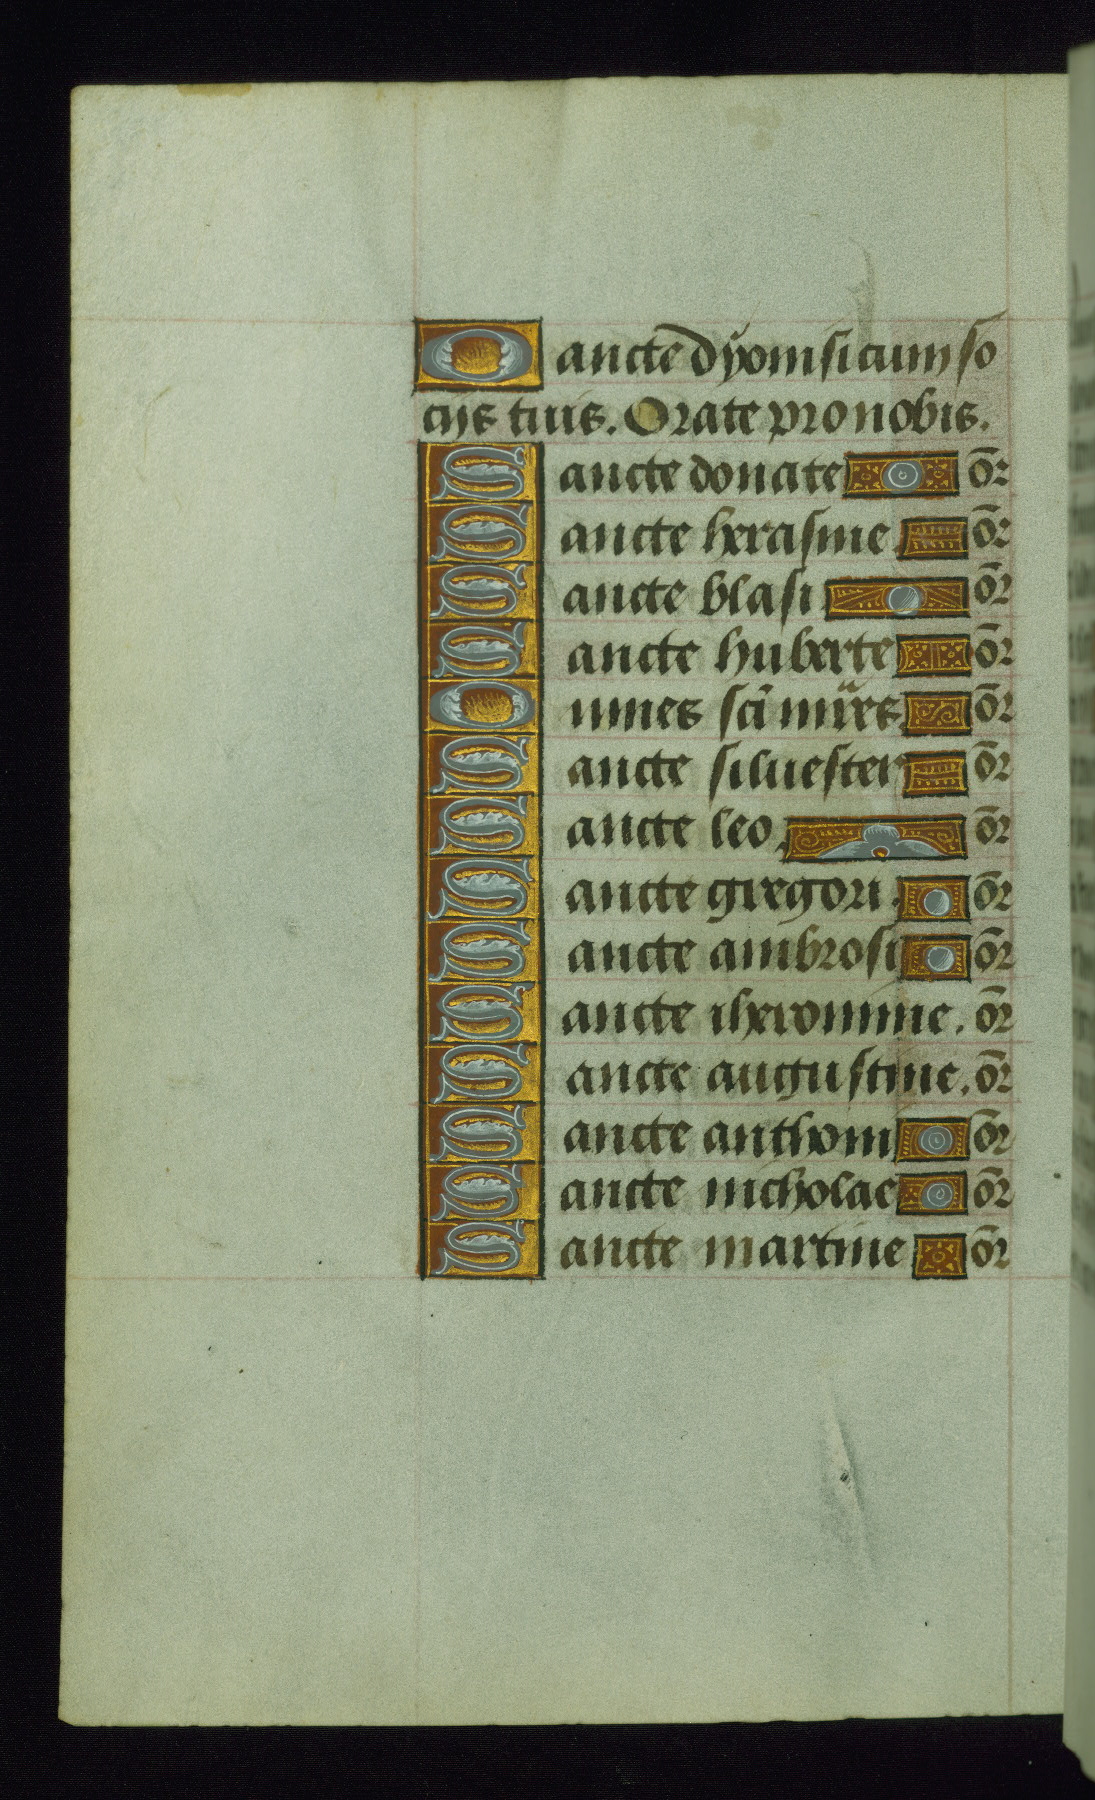 Oancte dyonisi cum so
cijs tuis. Orate pro nobis.
Sancte donate or
Sancte herasme or
Sancte blasi or
Sancte huberte or
Omnes scī mr̄es or
Sancte siluester or
Sancte leo or
Sancte gregori or
Sancte ambrosi or
Sancte iheronime. or
Sancte augustine. or
Sancte anthoni or
Sancte nicholae or
Sancte martine or